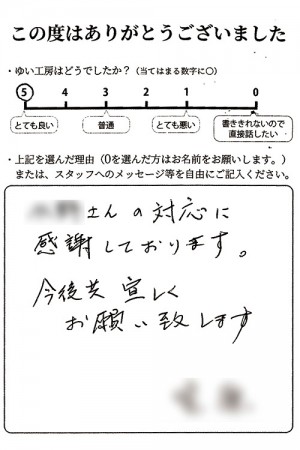 この度はありがとうございました
・ゆい工房はどうでしたか？（当てはまる数字に○）
5 4 3 2 1 0
とても良い 普通 とても悪い 書ききれないので直接話したい
・上記を選んだ理由（0を選んだ方はお名前をお願いします。）
または、スタッフへのメッセージ等を自由にご記入ください。
さんの対応に
感謝しております。
今後共宜しく
お願い致します